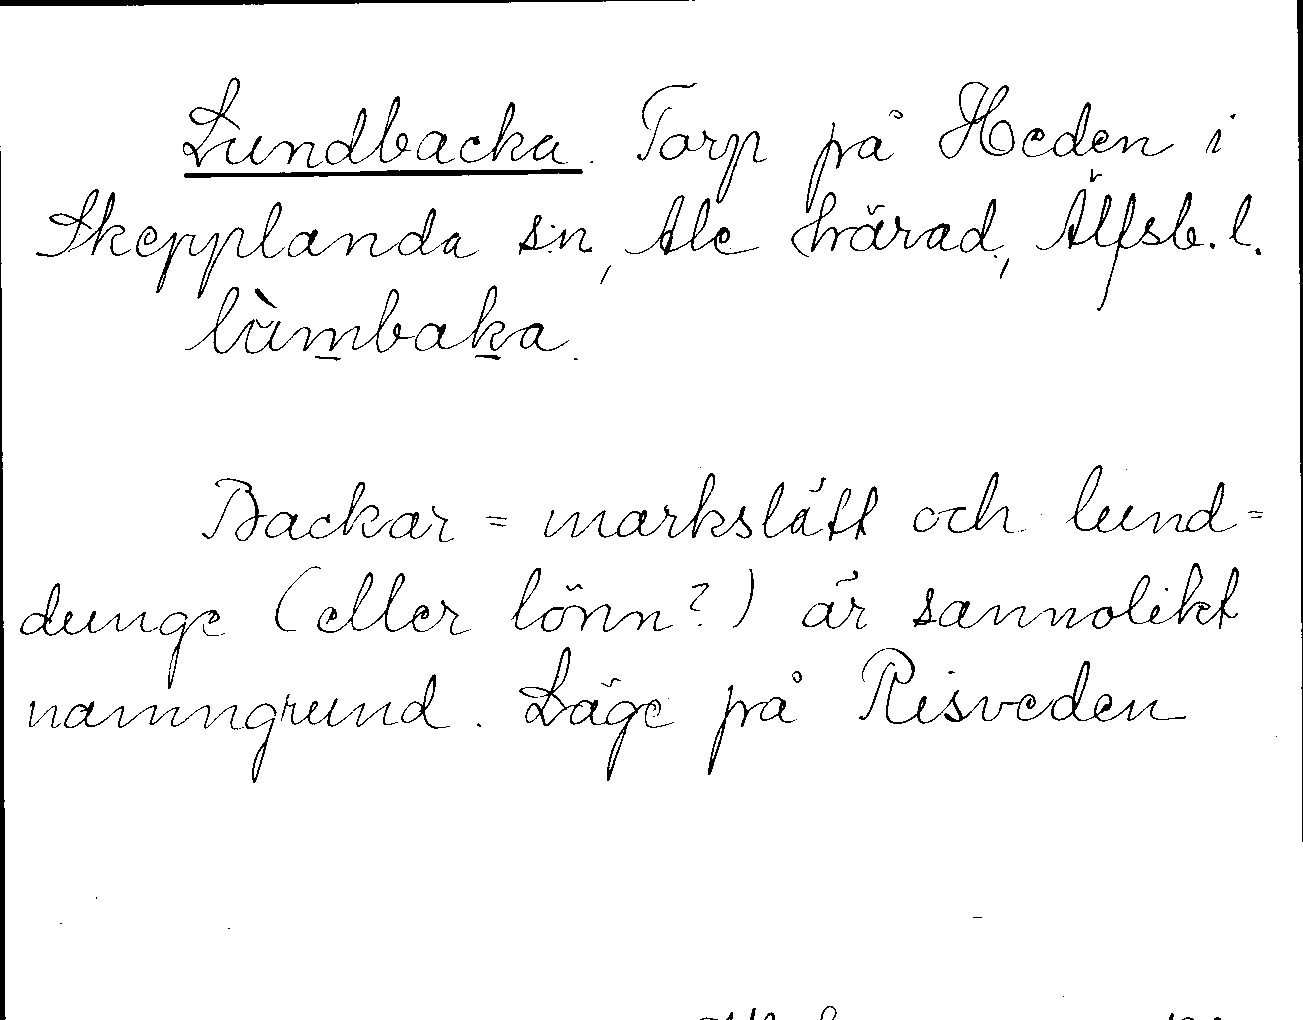 Lundbacka. Torp på Heden i
Skepplanda s:n, Ale härad, Älfsb. l.
lùmbaka.
Backar = markslätt och lund=
dunge (eller lönn?) är sannolikt
namngrund. Läge på Risveden